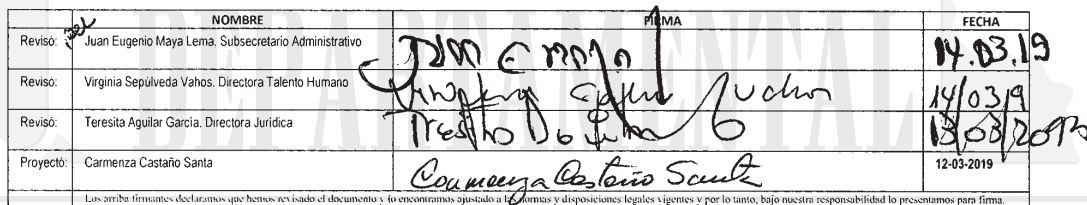 NOMBRE FIRMA FECHA
Revisó: Juan Eugenio Maya Lema. Subsecretario Administrativo 14.03.19
Revisó: Virginia Sepúlveda Vahos. Directora Talento Humano 14/03/19
Revisó: Teresita Aguilar García. Directora Jurídica 13/03/2019
Proyectó: Carmenza Castaño Santa Carmenza Castaño Santa 12-03-2019
Los arriba firmantes declaramos que hemos revisado el documento y lo encontramos ajustado a las normas y disposiciones legales vigentes y por lo tanto, bajo nuestra responsabilidad lo presentamos para firma.
DEPARTAMENTAL